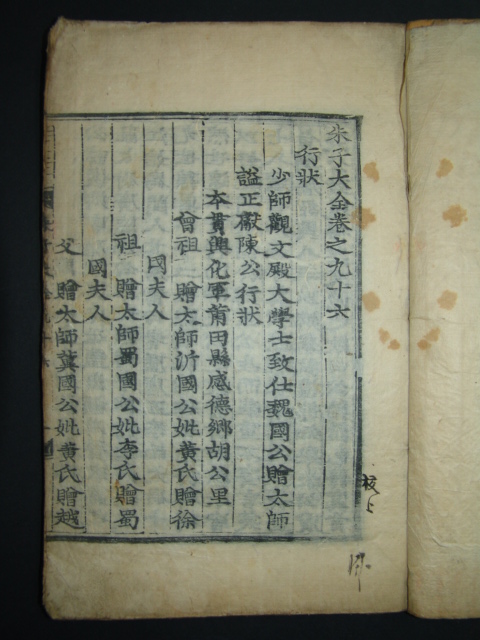 朱子大全卷之九十六
行狀
少師觀文殿大學士致仕魏國公贈太師
謚正獻陳公行狀
本貫興化軍莆田縣感德鄉胡公里
曾祖 贈太師沂國公妣黃氏贈徐
國夫人
祖 贈太師蜀國公妣李氏贈蜀
國夫人
父 贈太師冀國公妣黃氏贈越